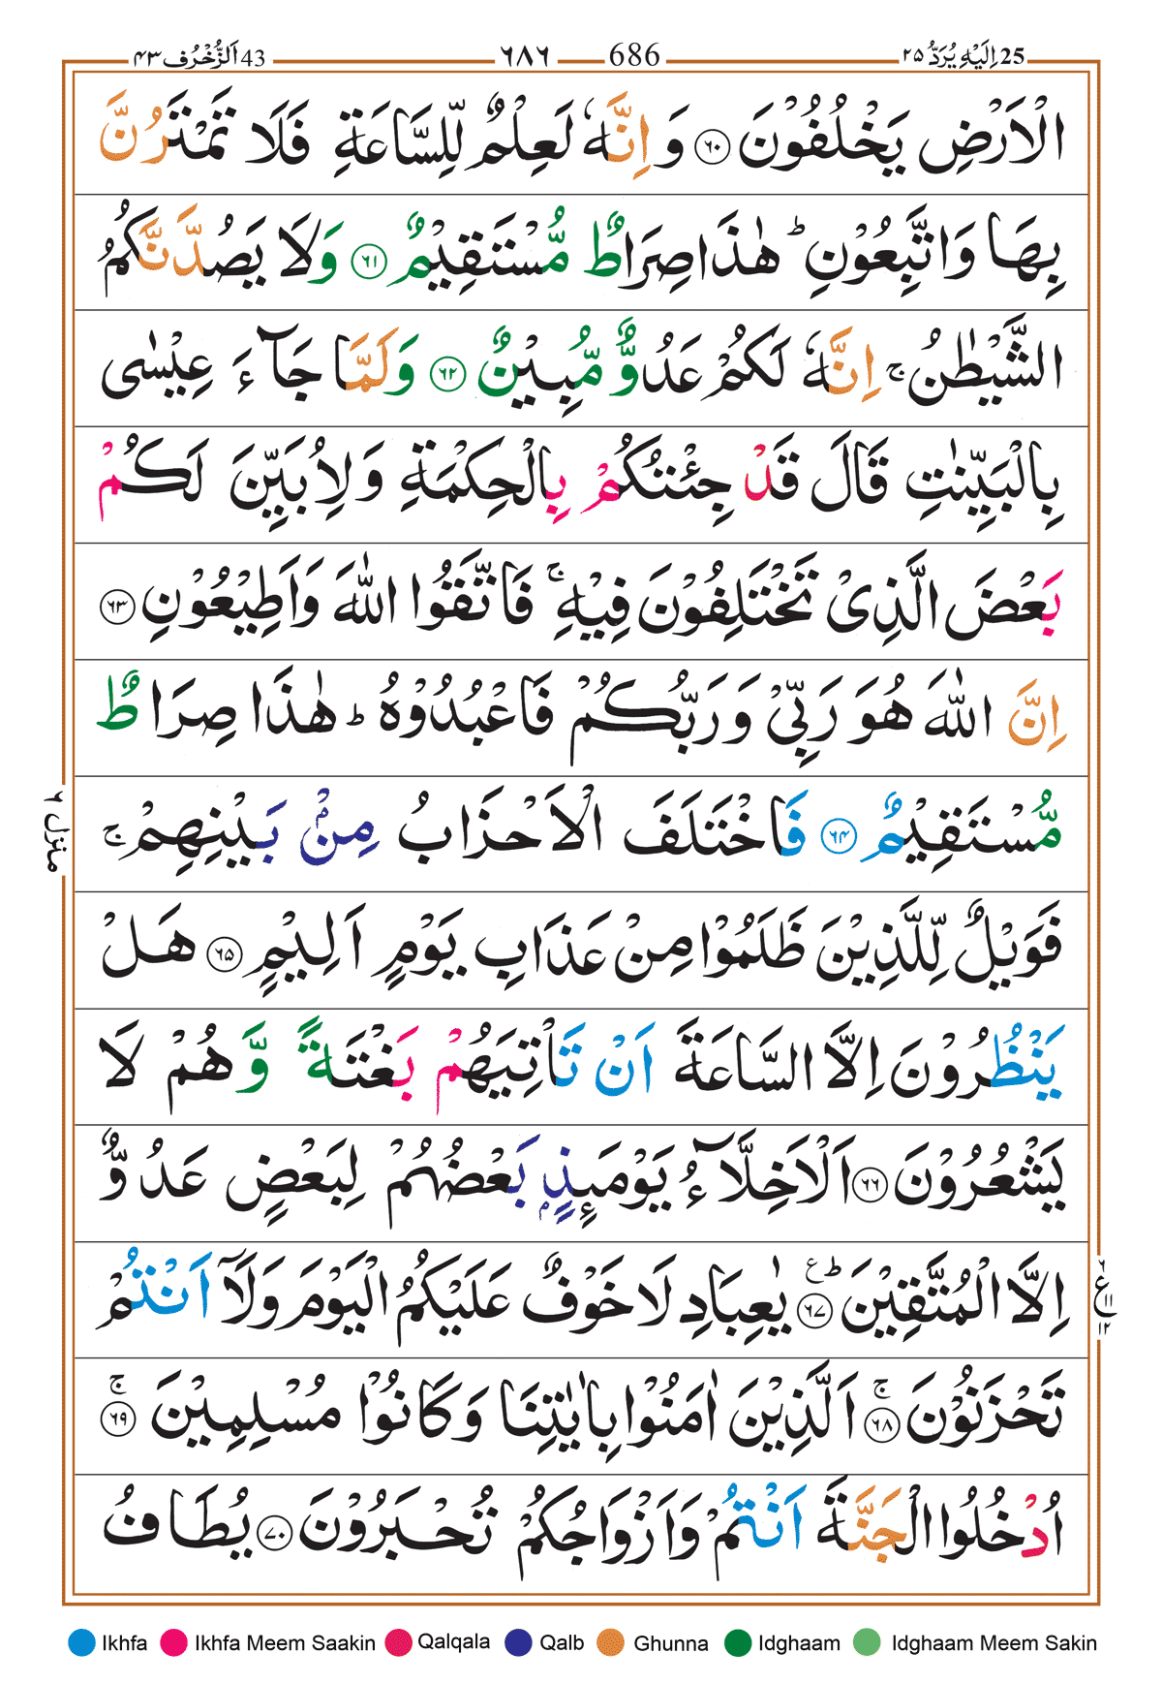 43 اَلزُّخْرُف ۴۳ ۶۸۶ 686 25 اِلَيْهِ يُرَدُّ ۲۵
الْاَرْضِ يَخْلُفُوْنَ ۶۰ وَاِنَّهٗ لَعِلْمٌ لِّلسَّاعَةِ فَلَا تَمْتَرُنَّ
بِهَا وَاتَّبِعُوْنِ ؕ هٰذَا صِرَاطٌ مُّسْتَقِيْمٌ ۶۱ وَلَا يَصُدَّنَّكُمُ
الشَّيْطٰنُ ۚ اِنَّهٗ لَكُمْ عَدُوٌّ مُّبِيْنٌ ۶۲ وَلَمَّا جَآءَ عِيْسٰى
بِالْبَيِّنٰتِ قَالَ قَدْ جِئْتُكُمْ بِالْحِكْمَةِ وَلِاُبَيِّنَ لَكُمْ
بَعْضَ الَّذِىْ تَخْتَلِفُوْنَ فِيْهِ ۚ فَاتَّقُوا اللّٰهَ وَاَطِيْعُوْنِ ۶۳
اِنَّ اللّٰهَ هُوَ رَبِّىْ وَرَبُّكُمْ فَاعْبُدُوْهُ ؕ هٰذَا صِرَاطٌ
مُّسْتَقِيْمٌ ۶۴ فَاخْتَلَفَ الْاَحْزَابُ مِنْۢ بَيْنِهِمْ ۚ
منزل ۶
فَوَيْلٌ لِّلَّذِيْنَ ظَلَمُوْا مِنْ عَذَابِ يَوْمٍ اَلِيْمٍ ۶۵ هَلْ
يَنْظُرُوْنَ اِلَّا السَّاعَةَ اَنْ تَاْتِيَهُمْ بَغْتَةً وَّهُمْ لَا
يَشْعُرُوْنَ ۶۶ اَلْاَخِلَّآءُ يَوْمَئِذٍۭ بَعْضُهُمْ لِبَعْضٍ عَدُوٌّ
اِلَّا الْمُتَّقِيْنَ ؕ ع ۶۷ يٰعِبَادِ لَا خَوْفٌ عَلَيْكُمُ الْيَوْمَ وَلَآ اَنْتُمْ
۶ ع ۱۱ ۱۲
تَحْزَنُوْنَ ۚ ۶۸ اَلَّذِيْنَ اٰمَنُوْا بِاٰيٰتِنَا وَكَانُوْا مُسْلِمِيْنَ ۚ ۶۹
اُدْخُلُوا الْجَنَّةَ اَنْتُمْ وَاَزْوَاجُكُمْ تُحْبَرُوْنَ ۷۰ يُطَافُ
Ikhfa Ikhfa Meem Saakin Qalqala Qalb Ghunna Idghaam Idghaam Meem Sakin